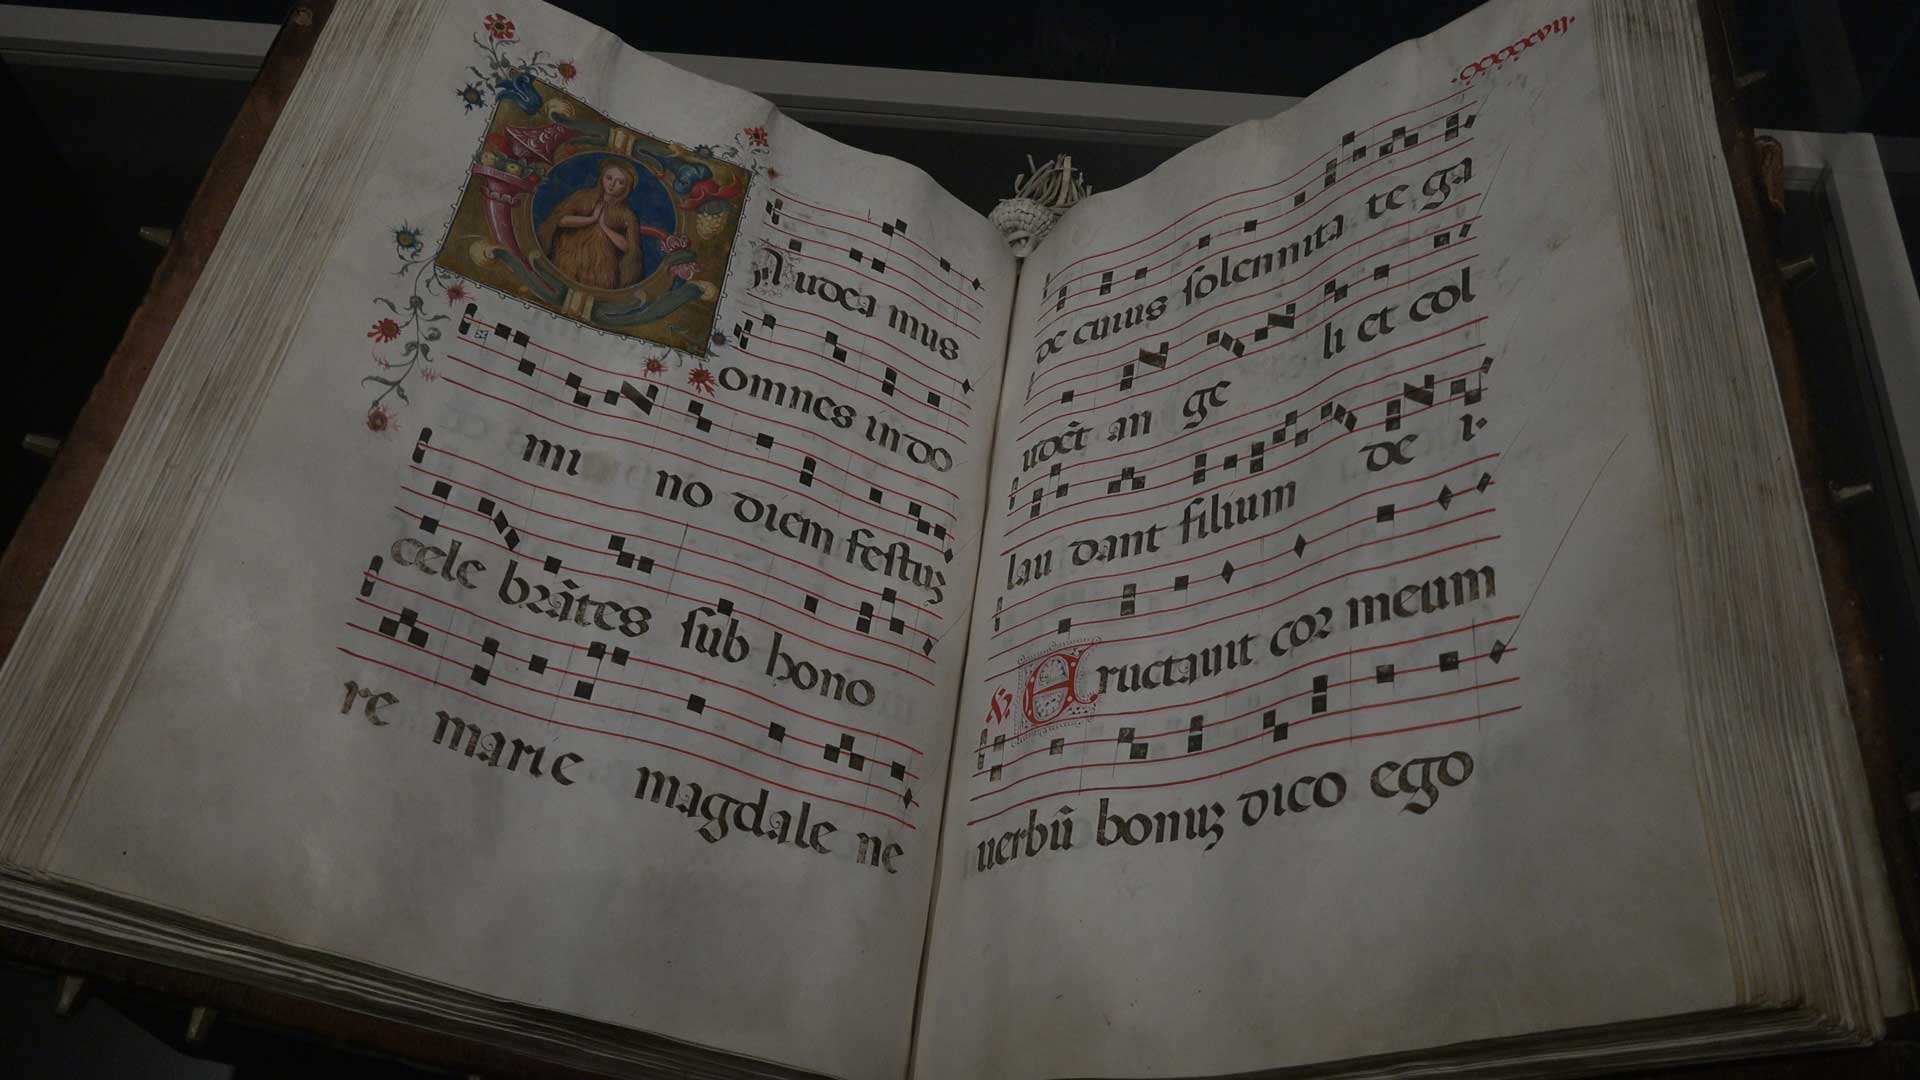 Audea mus
omnes in do
mi no diem festuȝ
cele brātes sub hono
re marie magdale ne
de cuius solennita te ga
udēt an ge li et col
lau dant filium de i.
Eructauit cor meum
uerbū bonuȝ dico ego